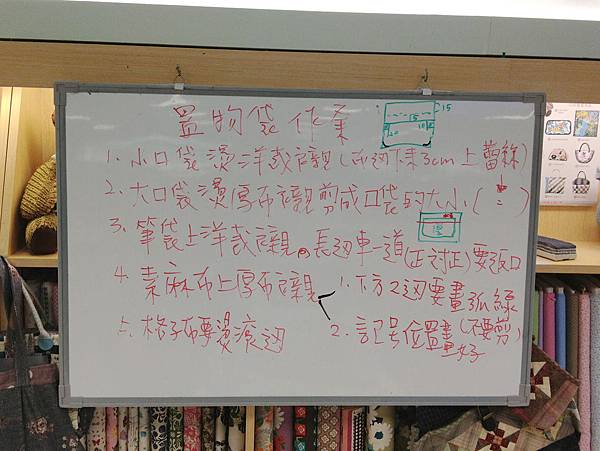 置物袋作業
15
15
10
1. 小口袋燙洋裁襯(向迴下來3cm上蕾絲)
2. 大口袋燙厚布襯剪成口袋的大小(
燙
3. 筆袋上洋裁襯。長迴車一道(正对正)要返口
4. 素麻布上厚布襯
1. 下方2迴要畫弧線
(不要剪)
2. 記号位置畫好
5. 格子布要燙滾迴